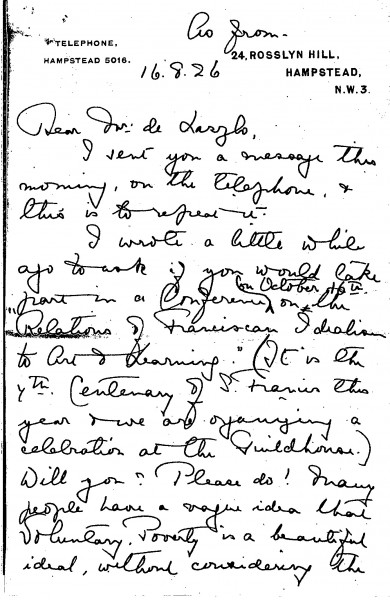 As from-
TELEPHONE,
HAMPSTEAD 5016.
24, ROSSLYN HILL,
HAMPSTEAD,
N.W.3.
16.8.26
Dear Mr. de Laszlo,
I sent you a message this
morning, on the telephone, &
this is to repeat it.
I wrote a little while
ago to ask if you would take
part in a Conference on October 4th. on the
"Relations of Franciscan Idealism
to Art & Learning." (It is the
7th. Centenary of S. Francis this
year & we are organizing a
celebration at the Guildhouse.)
Will you? Please do! Many
people have a vague idea that
Voluntary Poverty is a beautiful
ideal, without considering the